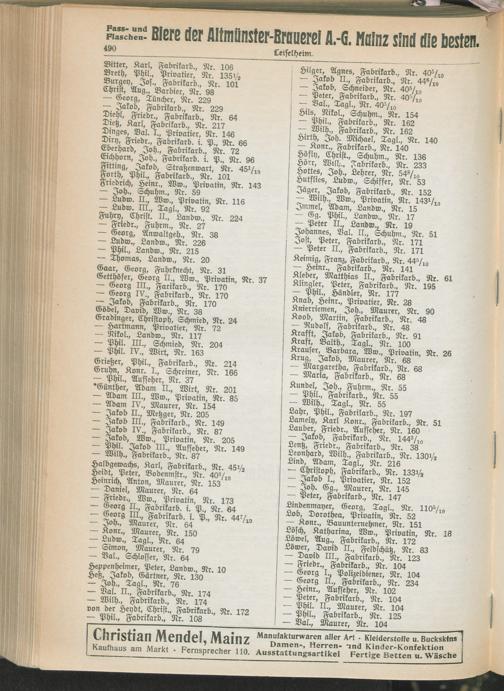 Fass- und
Flaschen-
Biere der Altmünster-Brauerei A.-G. Mainz sind die besten.
490
Leiselheim.
Bitter, Karl, Fabrikarb., Nr. 106
Breth, Phil., Privatier, Nr. 135½
Burgey, Jos., Fabrikarb., Nr. 101
Christ, Aug., Barbier, Nr. 98
— Georg, Tüncher, Nr. 229
— Jakob, Fabrikarb., Nr. 229
Diehl, Friedr., Fabrikarb., Nr. 64
Dietz, Karl, Fabrikarb., Nr. 217
Dinges, Val. I., Privatier, Nr. 146
Diry, Friedr., Fabrikarb. i. P., Nr. 66
Eberhard, Joh., Fabrikarb., Nr. 72
Eichhorn, Joh., Fabrikarb. i. P., Nr. 96
Fitting, Jakob, Straßenwart, Nr. 45¹/₁₀
Forth, Phil., Fabrikarb., Nr. 101
Friedrich, Heinr., Ww., Privatin, Nr. 143
— Joh., Schuhm., Nr. 59
— Ludw. II., Ww., Privatin, Nr. 116
— Ludw. III., Tagl., Nr. 92
Fuhry, Christ. II., Landw., Nr. 224
— Friedr., Fuhrm., Nr. 27
— Georg, Anwaltgeh., Nr. 38
— Ludw., Landw., Nr. 226
— Phil., Landw., Nr. 213
— Thomas, Landw., Nr. 20
Gaar, Georg, Fuhrknecht, Nr. 31
Getthöfer, Georg II., Ww., Privatin, Nr. 37
— Georg III., Farikarb., Nr. 170
— Georg IV., Fabrikarb., Nr. 170
— Jakob, Fabrikarb., Nr. 170
Göbel, David, Ww., Nr. 38
Gradinger, Christoph, Schmied, Nr. 24
— Hartmann, Privatier, Nr. 72
— Nikol., Landw., Nr. 117
— Phil. III., Schmied, Nr. 204
— Phil. IV., Wirt, Nr. 163
Grießer, Phil., Fabrikarb., Nr. 214
Gruhn, Konr. I., Schreiner, Nr. 166
— Phil., Aufseher, Nr. 37
*Günther, Adam II., Wirt, Nr. 201
— Adam III., Ww., Privatin, Nr. 85
— Adam IV., Maurer, Nr. 154
— Jakob II., Metzger, Nr. 205
— Jakob III., Fabrikarb., Nr. 149
— Jakob IV., Fabrikarb., Nr. 87
— Jakob, Ww., Privatin, Nr. 205
— Phil. Jakob III., Aufseher, Nr. 149
— Wilh., Fabrikarb., Nr. 87
Halbgewachs, Karl, Fabrikarb., Nr. 45½
Heidt, Peter, Bodenmstr., Nr. 40⁵/₁₀
Heinrich, Anton, Maurer, Nr. 153
— Daniel, Maurer, Nr. 64
— Friedr., Ww., Privatin, Nr. 173
— Georg II., Fabrikarb. i. P., Nr. 64
— Georg III., Fabrikarb. i. P., Nr. 44⁷/₁₀
— Joh., Maurer, Nr. 64
— Konr., Maurer, Nr. 150
— Ludw., Tagl., Nr. 64
— Simon, Maurer, Nr. 79
— Val., Schlosser, Nr. 64
Heppenheimer, Peter, Landw., Nr. 10
Heß, Jakob, Gärtner, Nr. 130
— Joh., Tagl., Nr. 76
— Val. II., Fabrikarb., Nr. 174
— Wilh., Fabrikarb., Nr. 174
von der Heydt, Christ., Fabrikarb., Nr. 172
— Phil., Fabrikarb., Nr. 108
Hilger, Agnes, Fabrikarb., Nr. 40⁵/₁₀
— Jakob II., Fabrikarb., Nr. 44⁸/₁₀
— Jakob, Schneider, Nr. 40⁵/₁₀
— Peter, Fabrikarb., Nr. 40⁵/₁₀
— Val., Tagl., Nr. 40⁵/₁₀
Hils, Nikol., Schuhm., Nr. 154
— Phil., Fabrikarb., Nr. 162
— Wilh., Fabrikarb., Nr. 162
Hirth, Joh. Michael, Tagl., Nr. 140
— Konr., Fabrikarb., Nr. 140
Höfly, Christ., Schuhm., Nr. 136
Hörr, Wilh., Fabrikarb., Nr. 233
Hottes, Joh., Lehrer, Nr. 54⁸/₁₀
Hutflies, Ludw., Schiffer, Nr. 53
Jäger, Jakob, Fabrikarb., Nr. 152
— Wilh., Ww., Privatin, Nr. 143¹/₁₀
Immel, Adam, Landw., Nr. 15
— Gg. Phil., Landw., Nr. 17
— Peter II., Landw., Nr. 19
Johannes, Val. II., Schuhm., Nr. 51
Jost, Peter, Fabrikarb., Nr. 171
— Peter II., Fabrikarb., Nr. 171
Keimig, Franz, Fabrikarb., Nr. 44⁵/₁₀
— Heinr., Fabrikarb., Nr. 141
Kleber, Matthias II., Fabrikarb., Nr. 61
Klingler, Peter, Fabrikarb., Nr. 195
— Phil., Händler, Nr. 177
Knab, Heinr., Privatier, Nr. 28
Knierriemen, Joh., Maurer, Nr. 90
Koob, Martin, Fabrikarb., Nr. 48
— Rudolf, Fabrikarb., Nr. 48
Krafft, Jakob, Fabrikarb., Nr. 91
Kraft, Balth., Tagl., Nr. 100
Krauser, Barbara, Ww., Privatin, Nr. 26
Krug, Jakob, Maurer, Nr. 68
— Margaretha, Fabrikarb., Nr. 68
— Maria, Fabrikarb., Nr. 68
Kundel, Joh., Fuhrm., Nr. 55
— Phil., Fabrikarb., Nr. 55
— Wilh., Tagl., Nr. 55
Lahr, Phil., Fabrikarb., Nr. 197
Lameth, Karl Konr., Fabrikarb., Nr. 51
Lauber, Friedr., Aufseher, Nr. 160
— Jakob, Fabrikarb., Nr. 144⁵/₁₀
Lentz, Friedr., Fabrikarb., Nr. 38
Leonhard, Wilh., Fabrikarb., Nr. 130½
Lind, Adam, Tagl., Nr. 216
— Christoph, Fabrikarb., Nr. 133½
— Jakob I., Privatier, Nr. 152
— Joh. Gg., Maurer, Nr. 145
— Peter, Fabrikarb., Nr. 147
Lindenmayer, Georg, Tagl., Nr. 110⁵/₁₀
Lob, Dorothea, Privatin, Nr. 52
— Konr., Bauunternehmer, Nr. 151
Lösch, Katharina, Ww., Privatin, Nr. 18
Löwel, Aug., Fabrikarb., Nr. 172
Löwer, David II., Feldschütz, Nr. 83
— David III., Fabrikarb., Nr. 123
— Friedr., Fabrikarb., Nr. 104
— Georg I., Polizeidiener, Nr. 104
— Georg II., Fabrikarb., Nr. 234
— Heinr., Aufseher, Nr. 102
— Peter, Fabrikarb., Nr. 104
— Phil. II., Maurer, Nr. 104
— Phil., Fabrikarb., Nr. 125
— Val., Maurer, Nr. 104
Christian Mendel, Mainz
Kaufhaus am Markt · Fernsprecher 110.
Manufakturwaren aller Art · Kleiderstoffe u. Buckskins
Damen-, Herren- und Kinder-Konfektion
Ausstattungsartikel Fertige Betten u. Wäsche